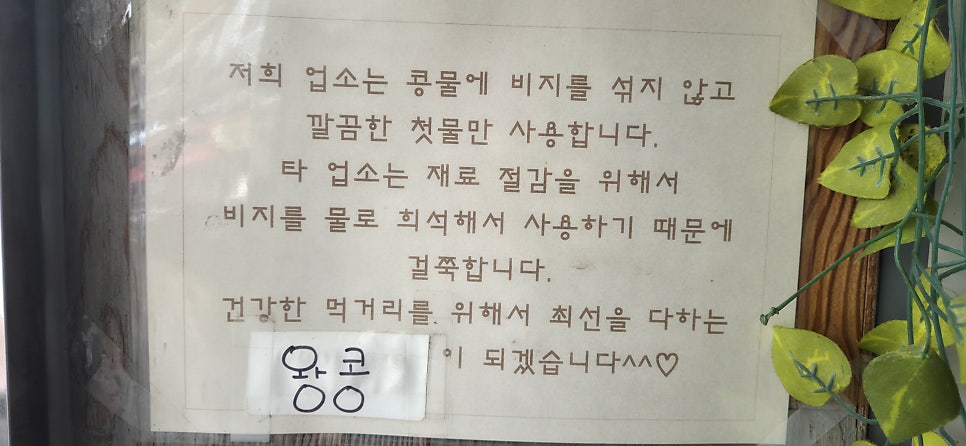 저희 업소는 콩물에 비지를 섞지 않고
깔끔한 첫물만 사용합니다.
타 업소는 재료 절감을 위해서
비지를 물로 희석해서 사용하기 때문에
걸쭉합니다.
건강한 먹거리를 위해서 최선을 다하는
왕콩이 되겠습니다^^♡